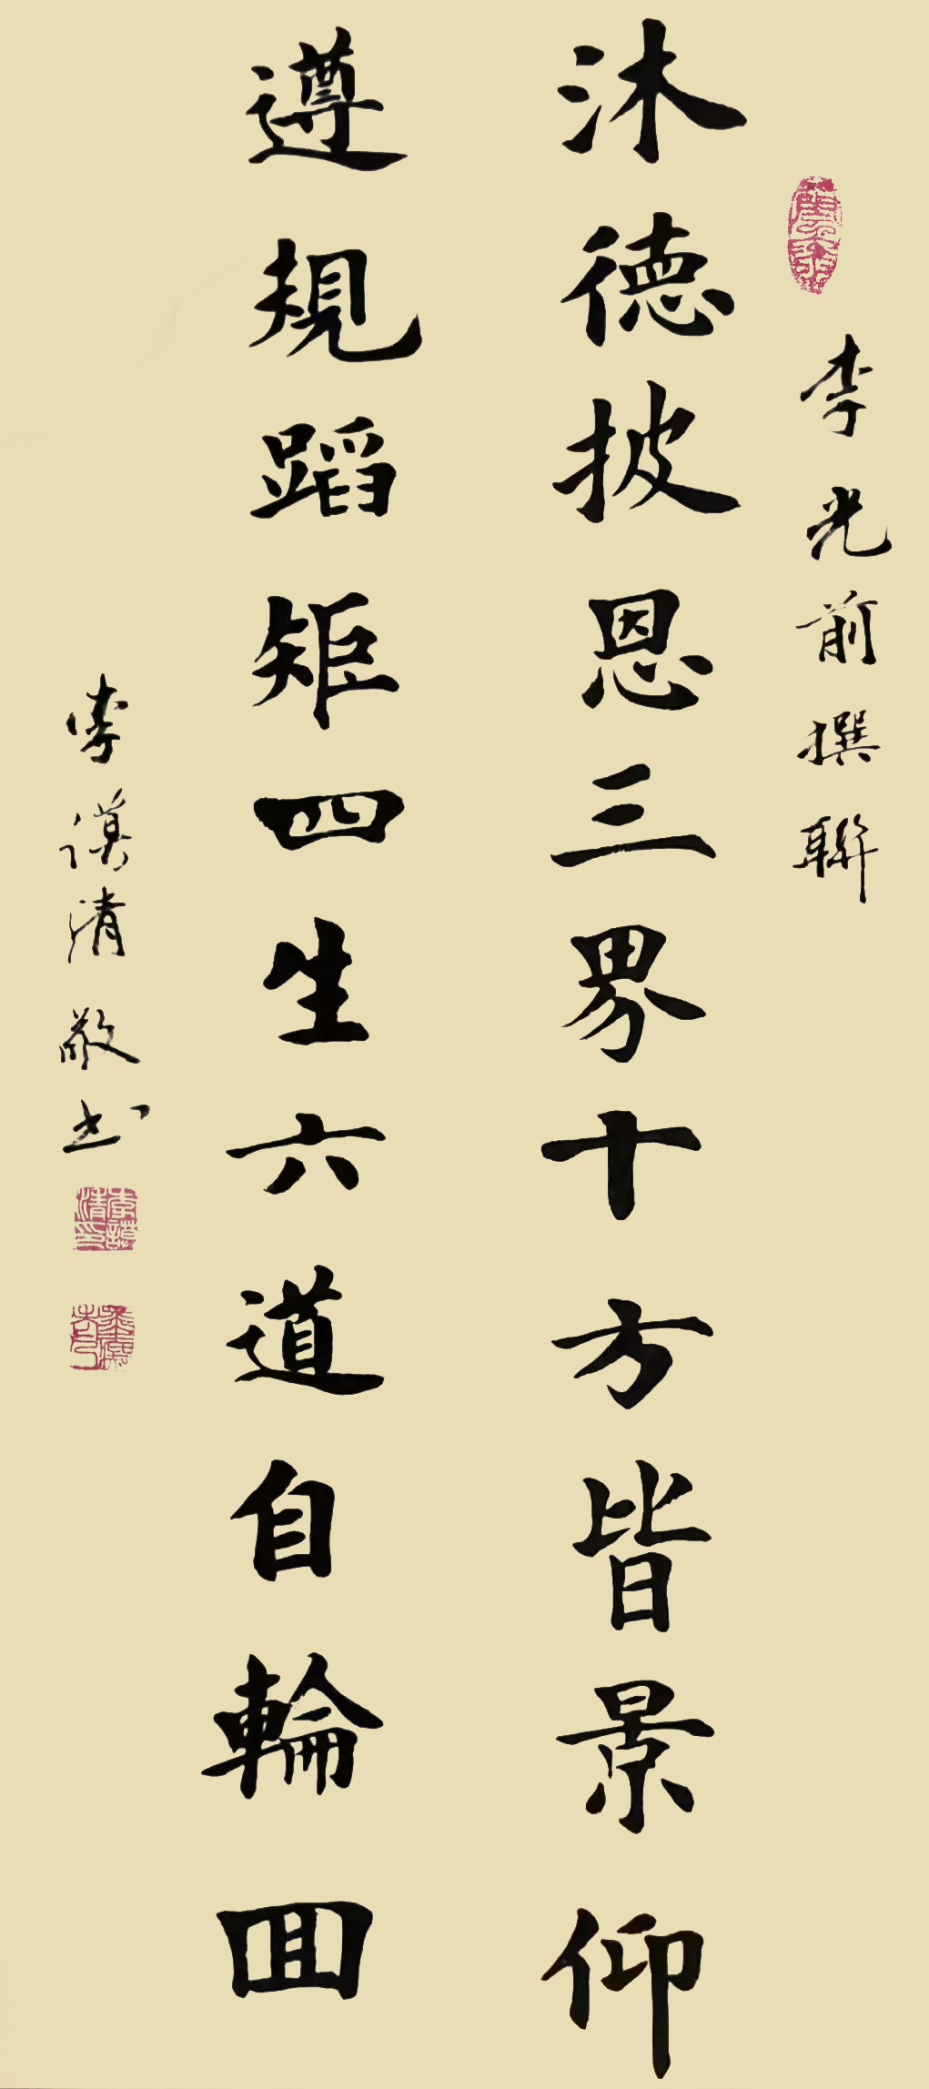 李光前撰聯
沐德披恩三界十方皆景仰
遵規蹈矩四生六道自輪回
李謨清敬书
李謨清印